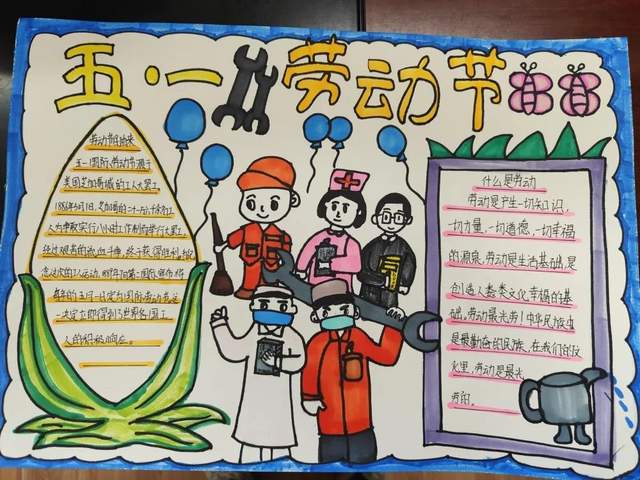 五·一 劳动节
劳动节的由来
五一国际劳动节源于
美国芝加哥城的工人大罢工
1886年5月1日,芝加哥的二十一万六千余名工
人为争取实行八小时工作制而举行大罢工
经过艰苦的流血斗争,终于获得胜利,
每年的五月一日定为国际劳动节这
一决定立即得到了世界各国工
人的积极响应。
什么是劳动
劳动是产生一切知识,
一切力量,一切道德,一切幸福
的源泉,劳动是生活基础,是
创造人类文化幸福的基
础,劳动最光荣!中华民族
是最勤奋的民族,在我们的
火里,劳动是最光